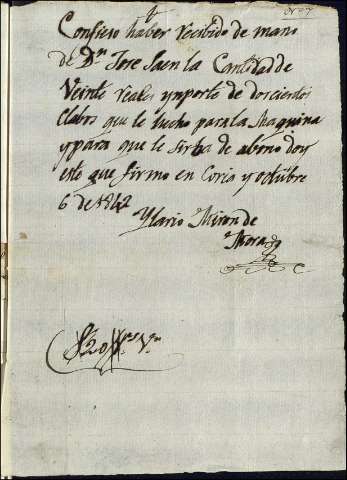 Nº 7
Confieso haber recibido de mano
de Dn Jose Saen la Cantidad de
Veinte reales ymporte de doscientos
Clabos que le hecho para la Maquina
y para que le sirba de abono doy
este que firmo en Coria y octubre
6 de 1842
Ylario Miron de
Mora
S 20 rs Vn